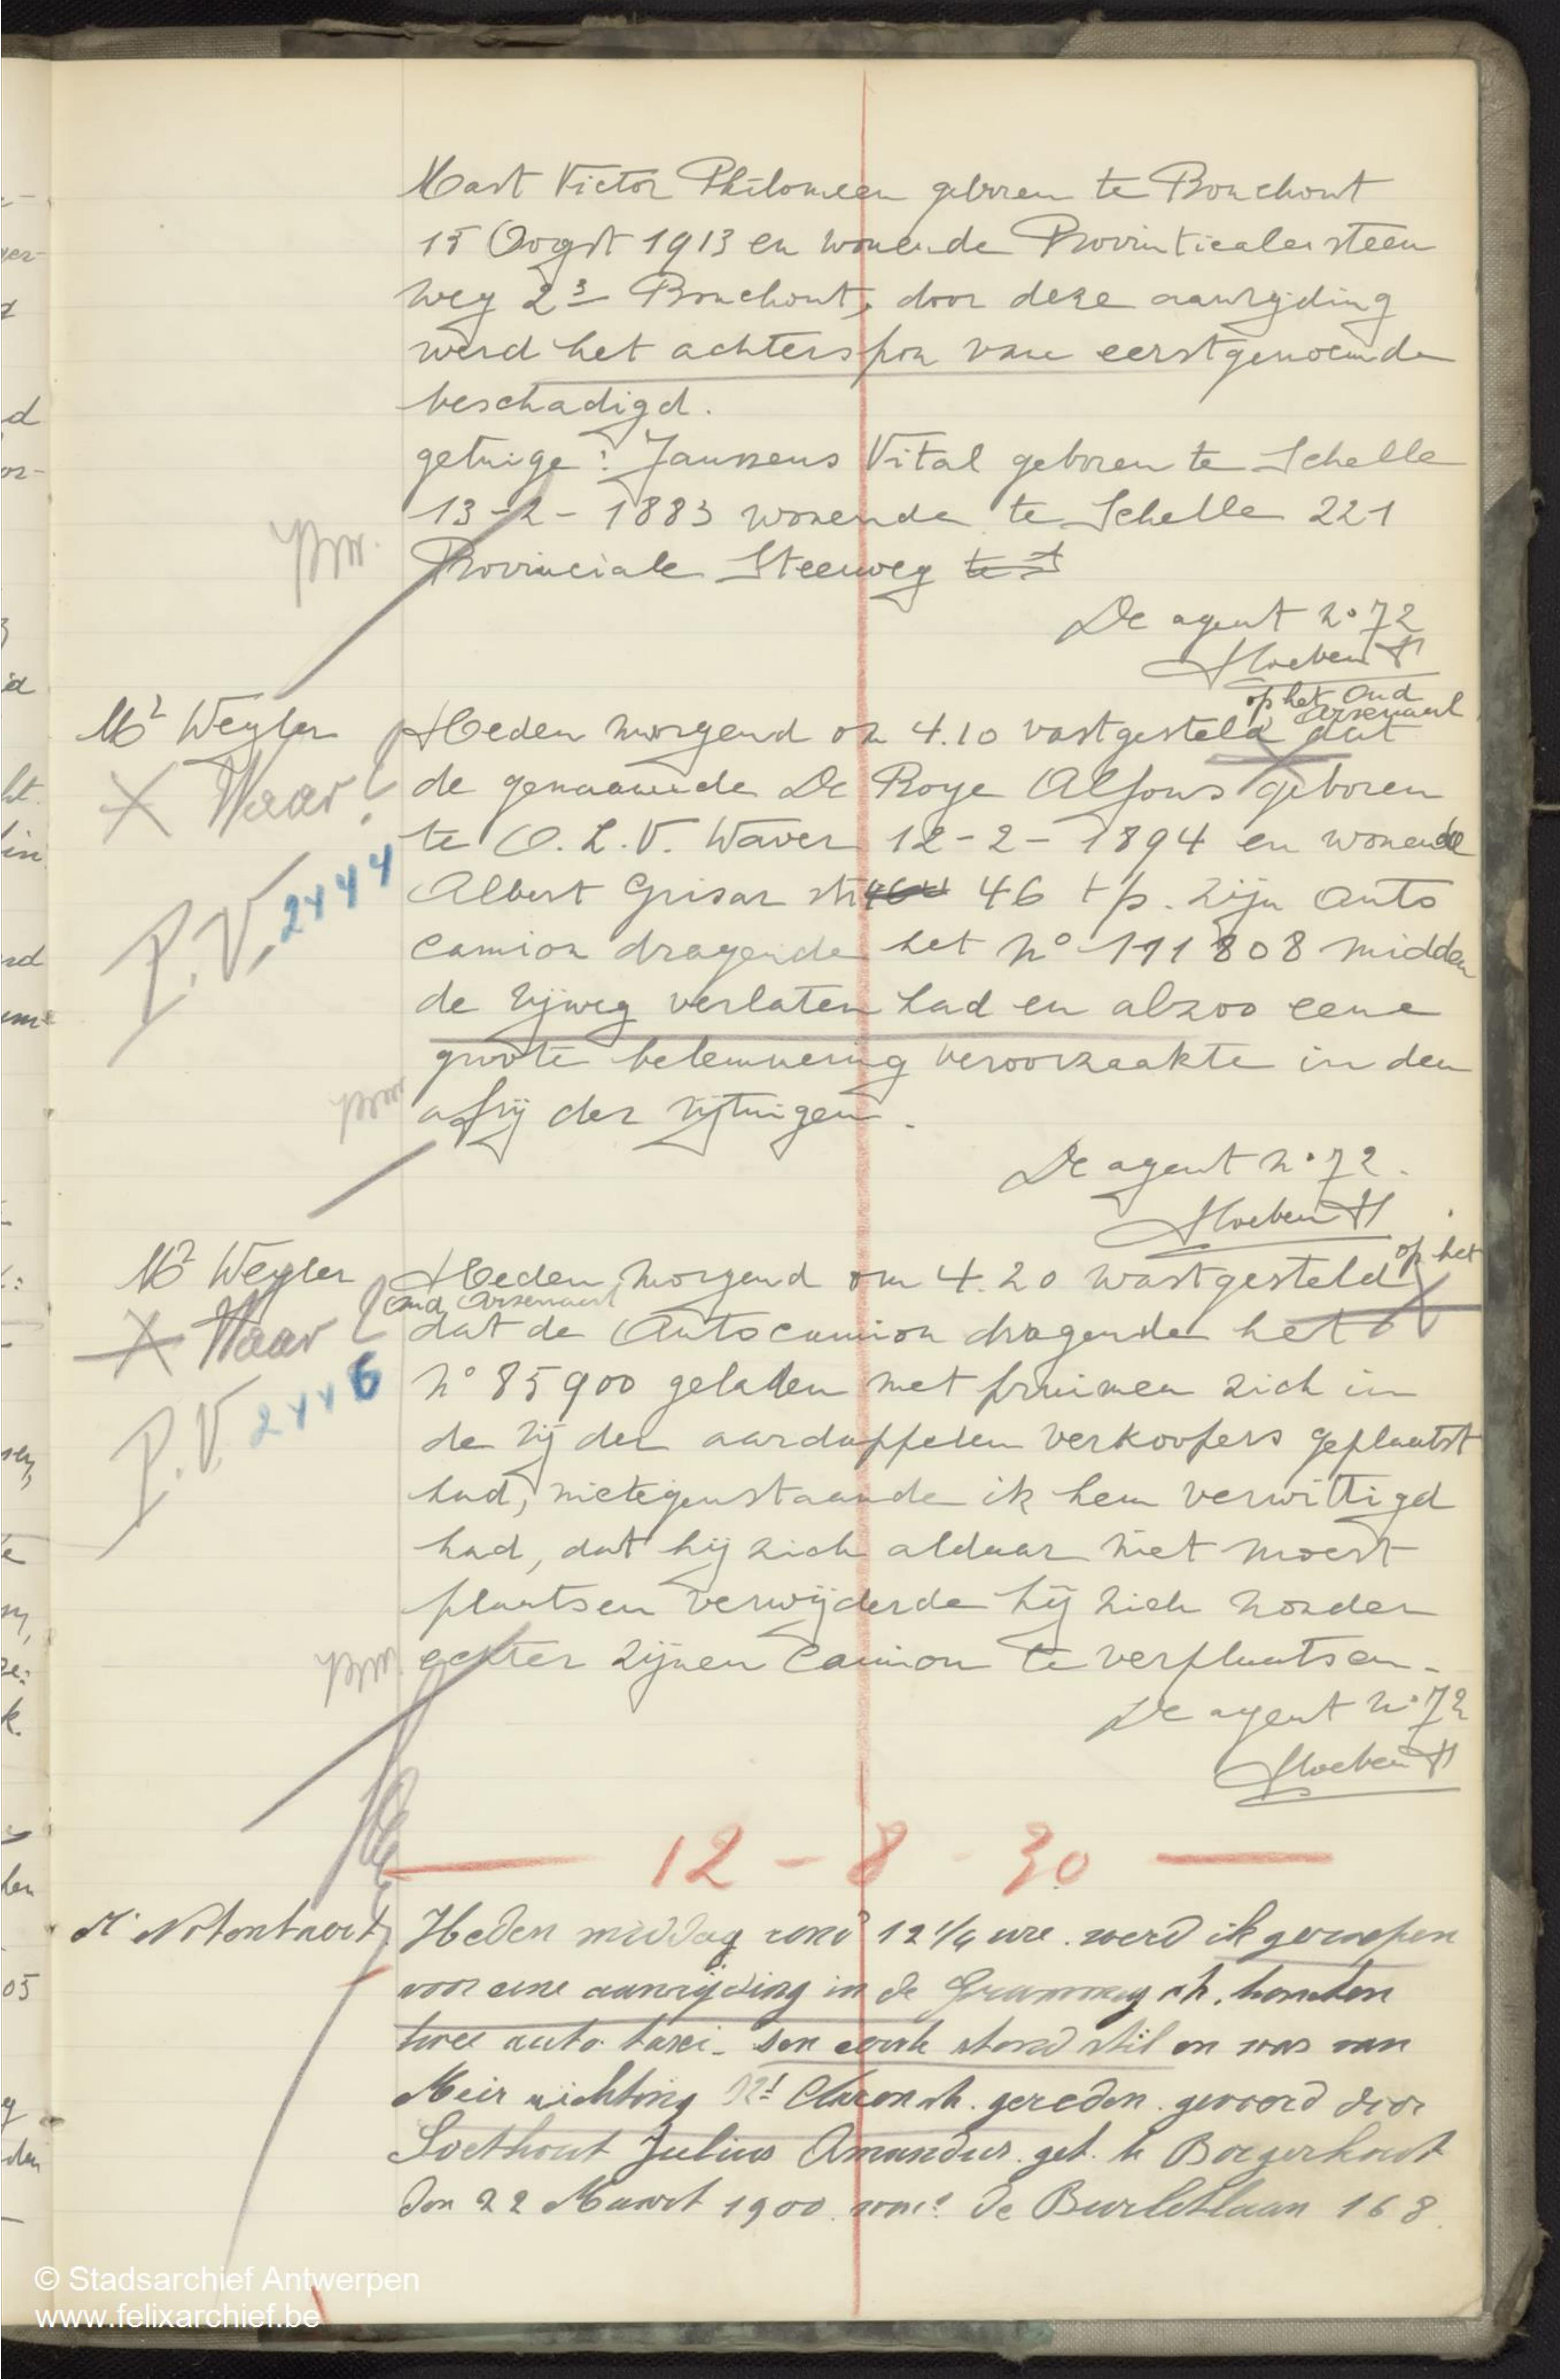 Mast Victor Philomeen geboren te Bouchout
15 Oogst 1913 en wonende Provinticalensteen
weg 23 Bouchout, door deze aanrijding
werd het achterspor van eerstgenoemde
beschadigd.
getuige: Janssens Vital geboren te Schelle
13-2-1883 wonende te Schelle 221
Provinciale Steenweg te S
De agent no 72
Hoeben H
Mr Weyler
X Waar?
P.V. 2444
op het Oud Arsenaal
Heden morgend om 4.10 vastgesteld dat
de genaamde De Roye Alfons geboren
te O.L.V. Waver 12-2-1894 en wonende
Albert Grisar str 46 tp. zijn Auto
camion dragende het No 191808 midden
de rijweg verlaten had en alzoo eene
groote belemmering veroorzaakte in den
afrij der rijtuigen.
De agent no 72.
Hoeben H
Mr Weyler
X Waar?
P.V. 2446
Heden morgend om 4.20 vastgesteld op het
Oud Arsenaal
dat de Autocamion dragende het
No 85900 geladen met pruimen zich in
de rij der aardappelen verkoopers geplaatst
had, niettegenstaande ik hem verwittigd
had, dat hij zich aldaar niet moest
plaatsen verwijderde hij zich zonder
echter zijnen Camion te verplaatsen.
De agent no 72
Hoeben H
12 - 8 - 30
Heden middag rond 12 1/4 ure werd ik geroepen
voor eene aanrijding in de str. tusschen
twee auto taxi. den eerste stond stil en was van
Meir richting gereden gevoerd door
Soethout Julius Amandus geb. te Borgerhout
den 22 Maart 1900 wone De Burletlaan 168.
© Stadsarchief Antwerpen
www.felixarchief.be